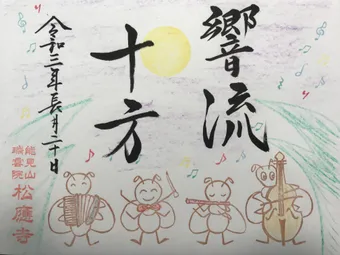 響流
十方
令和三年長月二十日
能見山
瑞雲院
松應寺